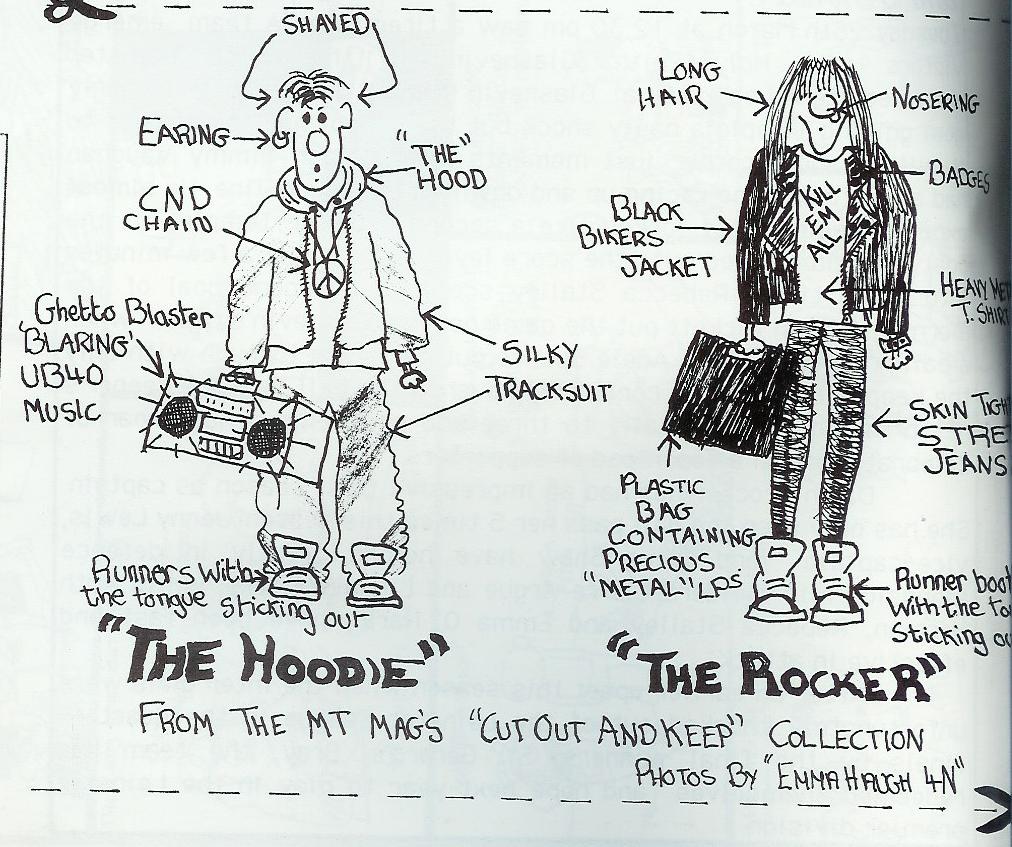 SHAVED
EARING
"THE"
HOOD
CND
CHAIN
Ghetto Blaster
'BLARING'
UB40
MUSIC
SILKY
TRACKSUIT
Runners with
the tongue sticking out
"THE HOODIE"
LONG
HAIR
NOSERING
BADGES
KILL
EM
ALL
BLACK
BIKERS
JACKET
HEAVY
T. SHIRT
SKIN
JEANS
PLASTIC
BAG
CONTAINING
PRECIOUS
"METAL" LPS.
Runner
with the
sticking
"THE ROCKER"
FROM THE MT MAG'S "CUT OUT AND KEEP" COLLECTION
PHOTOS BY "EMMA HAUGH 4N"